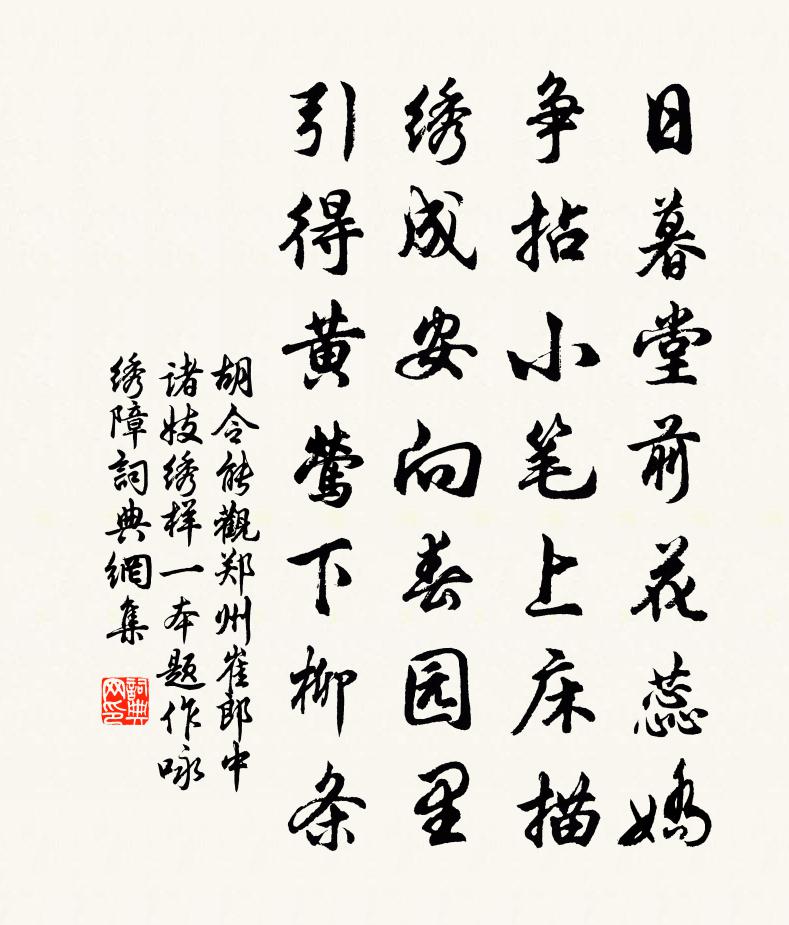 日暮堂前花蕊嬌
争拈小笔上床描
绣成安向春园里
引得黄莺下柳条
胡令能觀郑州崔郎中
诸妓绣样一本题作咏
绣障詞典網集
詞典网印